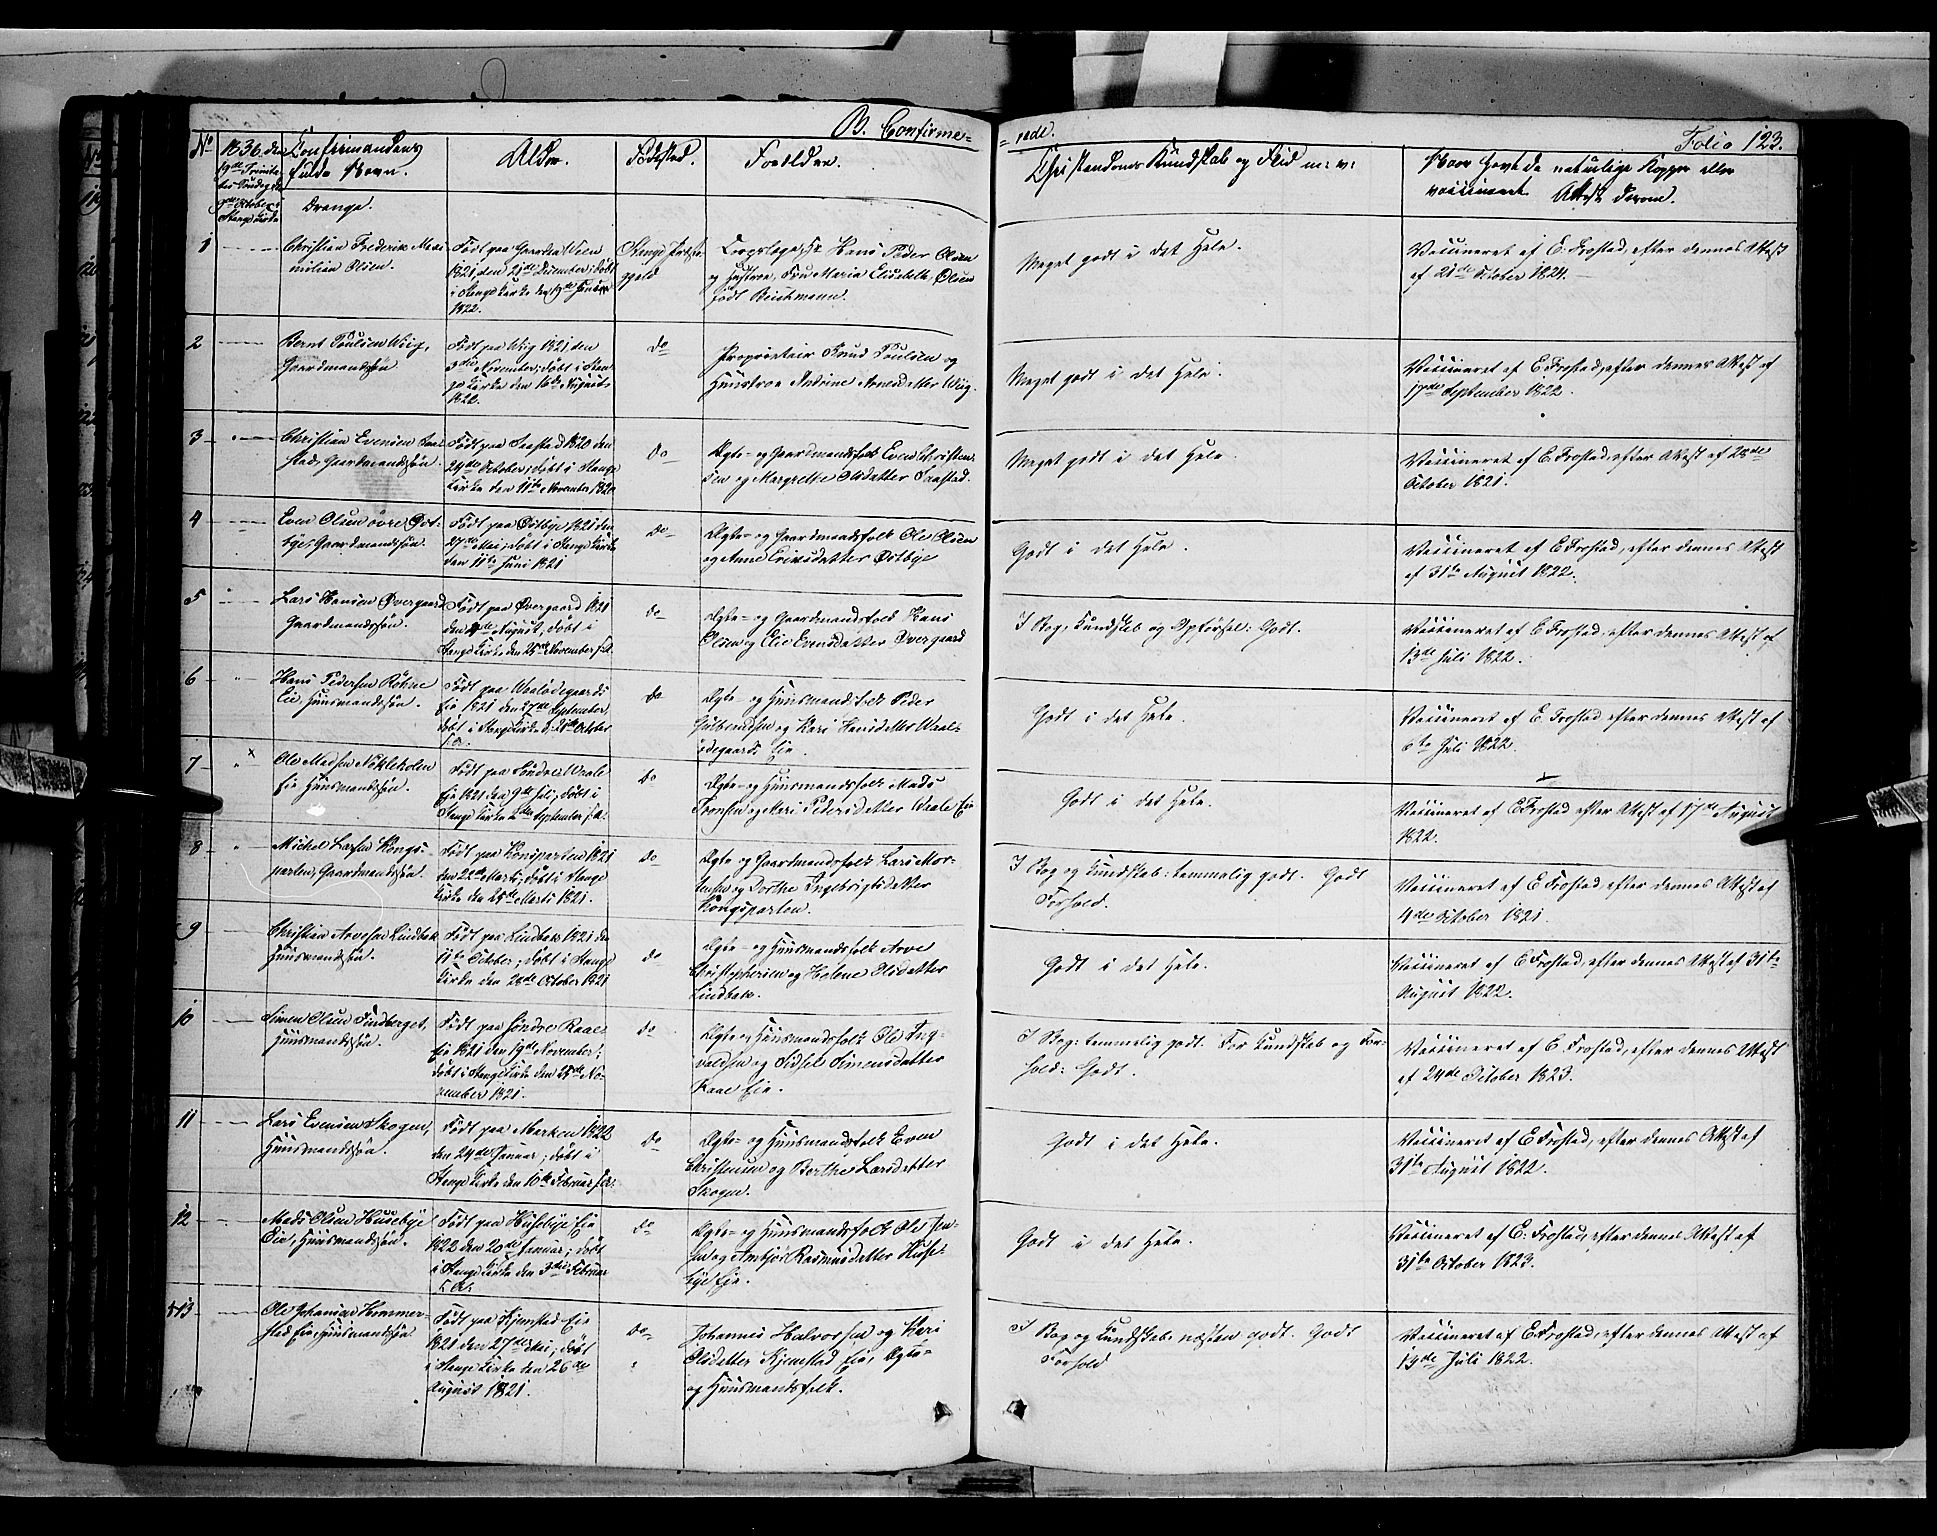 B. Confirme=
=rede.
Folio 123.
No
1836, den
19de Trinita
tis Søndag d.
9de October i
Stange Kirke
Confirmandens
fulde Navn.
Drenge.
Alder.
Fødested.
Forældre.
Christendoms Kundskab og Flid m: v:
Naar havt de naturlige Kopper eller
vaccineret Attest derom.
1
Christian Frederik Maxi
milian Olsen.
Født paa Gaarden Ween
1821 den 21de December, døbt
i Stange Kirke den 19de Januar
1822.
Stange Præste
gjeld
Corpslæge, Hr Hans Peder Olsen
og Hustroe, Fru Maria Elisabeth Olsen
født Beichmann.
Meget godt i det Hele.
Vaccineret af E. Frostad, efter dennes Attest
af 21de October 1824.
2
Bernt Poulsen Wiig,
Gaardmandssøn
Født paa Wiig 1821 den
3die November, døbt i Stan
ge Kirke den 18de August
1822.
Do
Proprietair Knud Poulsen og
Huustroe Andrine Arnesdatter Wiig.
Meget godt i det Hele.
Vaccineret af E. Frostad, efter dennes Attest af
17de September 1822.
3
Christian Evensen Saa
stad, Gaardmandssøn.
Født paa Saastad 1820 den
24de October, døbt i Stange
Kirke den 11te November 1820
Do
Ægte- og Gaardmandsfolk Even Christen
sen og Margrethe Olsdatter Saastad.
Meget godt i det Hele.
Vaccineret af E. Frostad, efter Attest af 28de
October 1821.
4
Even Olsen øvre Øst-
bye, Gaardmandssøn.
Født paa Østbye 1821 den
27de Mai, døbt i Stange Kirke
den 11te Juni 1821
Do
Ægte- og Gaardmandsfolk Ole Olsen
og Anne Eriksdatter Østbye
Godt i det Hele.
Vaccineret af E. Frostad, efter dennes Attest
af 31te August 1822.
5
Lars Hansen Øvergaard
Gaardmandssøn.
Født paa Øvergaard 1821
den 4de August, døbt i
Stange Kirke den 25de November s. A.
Do
Ægte- og Gaardmandsfolk Hans
Olsen og Elie Evensdatter Øvergaard
I Bog, Kundskab og Opførsel: Godt.
Vaccineret af E. Frostad, efter dennes Attest af
13de Juli 1822.
6
Hans Pedersen Røhne
Eie, Huusmandssøn.
Født paa Waalødegaards
Eie 1821 den 27de September,
døbt i Stange Kirke d. 21de October
s. A.
Do
Ægte- og Huusmandsfolk Peder
Gulbrandsen og Kari Hansdatter Waal-
ødegaards Eie.
Godt i det Hele.
Vaccineret af E. Frostad efter dennes Attest af
6te Juli 1822.
7
x
Ole Madsen Nøkleholm
Eie Huusmandssøn.
Født paa Søndre Waale
Eie 1821 den 9de Juli, døbt i
Stange Kirke September s. A.
Do
Ægte- og Huusmandsfolk Mads
Tronsen og Mari Pedersdatter Waale Eie
Godt i det Hele.
Vaccineret af E. Frostad efter Attest af 17de August
1822.
8
Michel Larsen Kongs-
parten, Gaardmandssøn.
Født paa Kongsparten 1821
den 22de Marts; døbt i Stange
Kirke den 25de Marts 1821.
Do
Ægte og Gaardmandsfolk Lars Mor-
tensen og Dorthe Ingebrigtsdatter
Kongsparten.
I Bog og Kundskab: temmelig godt. Godt
Forhold.
Vaccineret af E. Frostad, efter dennes Attest af
4de October 1821.
9
Christian Arvesen Lindbak
Huusmandssøn.
Født paa Lindbak 1821 den
11te October; døbt i Stange
Kirke den 28de October 1821
Do
Ægte- og Huusmandsfolk Arve
Christophersen og Helene Olsdatter
Lindbak.
Godt i det Hele.
Vaccineret af E. Frostad, efter dennes Attest af 31te
August 1822.
10
Simen Olsen Findberget,
Huusmandssøn.
Født paa Søndre Kaae
Eie 1821 den 19de November;
døbt i Stange Kirke den 25de No-
vember 1821.
Do
Ægte og Huusmandsfolk Ole Ing-
valdsen og Sidsel Simensdatter
Eie.
I Bog: temmelig godt. For Kundskab og For-
hold: Godt.
Vaccineret af E. Frostad, efter dennes Attest
af 24de October 1823.
11
Lars Evensen Skogen,
Huusmandssøn.
Født paa Marken 1822
den 24de Januar; døbt i
Stange Kirke den 10de Februar s. A.
Do
Ægte- og Huusmandsfolk Even
Christensen og Berthe Larsdatter
Skogen.
Godt i det Hele.
Vaccineret af E. Frostad, efter dennes Attest af
31te August 1822.
12
Mads Olsen Husebye
Eie, Huusmandssøn.
Født paa Husebye Eie
1822 den 20de Januar; døbt
i Stange Kirke den 3die Februar
s. A.
Do
Ægte- og Huusmandsfolk Ole Jen-
sen og Anbjør Rasmusdatter Huse-
bye Eie.
Godt i det Hele.
Vaccineret af E. Frostad, efter dennes Attest af
31te October 1823.
13
Ole Johansen Hemmer-
stad Eie, Huusmandssøn
Født paa Kjemstad Eie
1821 den 27de Mai; døbt
i Stange Kirke den 26de
August 1821.
Do
Johannes Halvorsen og Kari
Olsdatter Kjemstad Eie, Ægte-
og Huusmandsfolk.
I Bog og Kundskab: næsten godt. Godt
Forhold
Vaccineret af E. Frostad, efter dennes Attest af
13de Juli 1822.